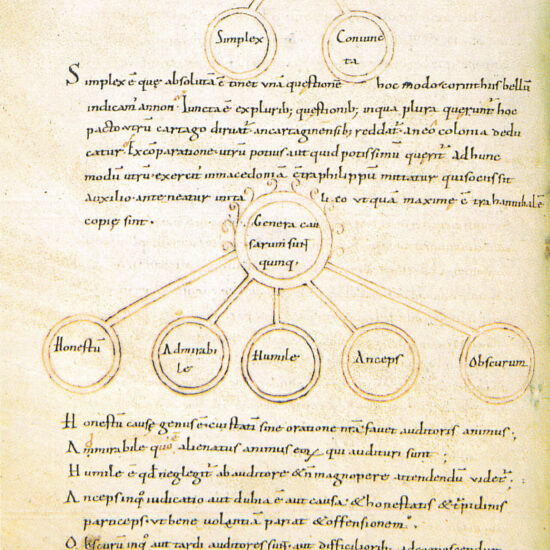 Simplex
Coniuncta
Simplex ē que absolutā ē tinet unā questionē hoc modo corinthus bellū
indicam' annon. Iuncta ē ex plurib; questionib; inqua plura querunt' hoc
pacto utrū cartago diruat' ancartaginensib; reddat' an eo colonia dedu
catur. Excōparatione utrū potius aut quid potissimū querit' Ad hunc
modū utrū exercit' inmacedoniā ētra philippū mittatur qui sociis sit
auxilio ante neatur inita li eo ut quā maxime ētra hannibalē
copie sint.
Genera cau
sarum sunt
quinq,
Honestū
Admirabi
le
Humile
Anceps
Obscurum
Honestū cause genus ē cui statī sine oratione nrā favet auditoris animus;
Ammirabile quo ē alienatus animus eor' qui audituri sunt;
Humile ē qd neglegit' ab auditore & n magnopere attendendū videt';
Anceps inq' iudicatio aut dubia ē aut causa & honestatis & turpidinis
particeps ut benevolantiā pariat & offensionem.
Obscurū inq' aut tardi auditores sunt aut difficiliorib;